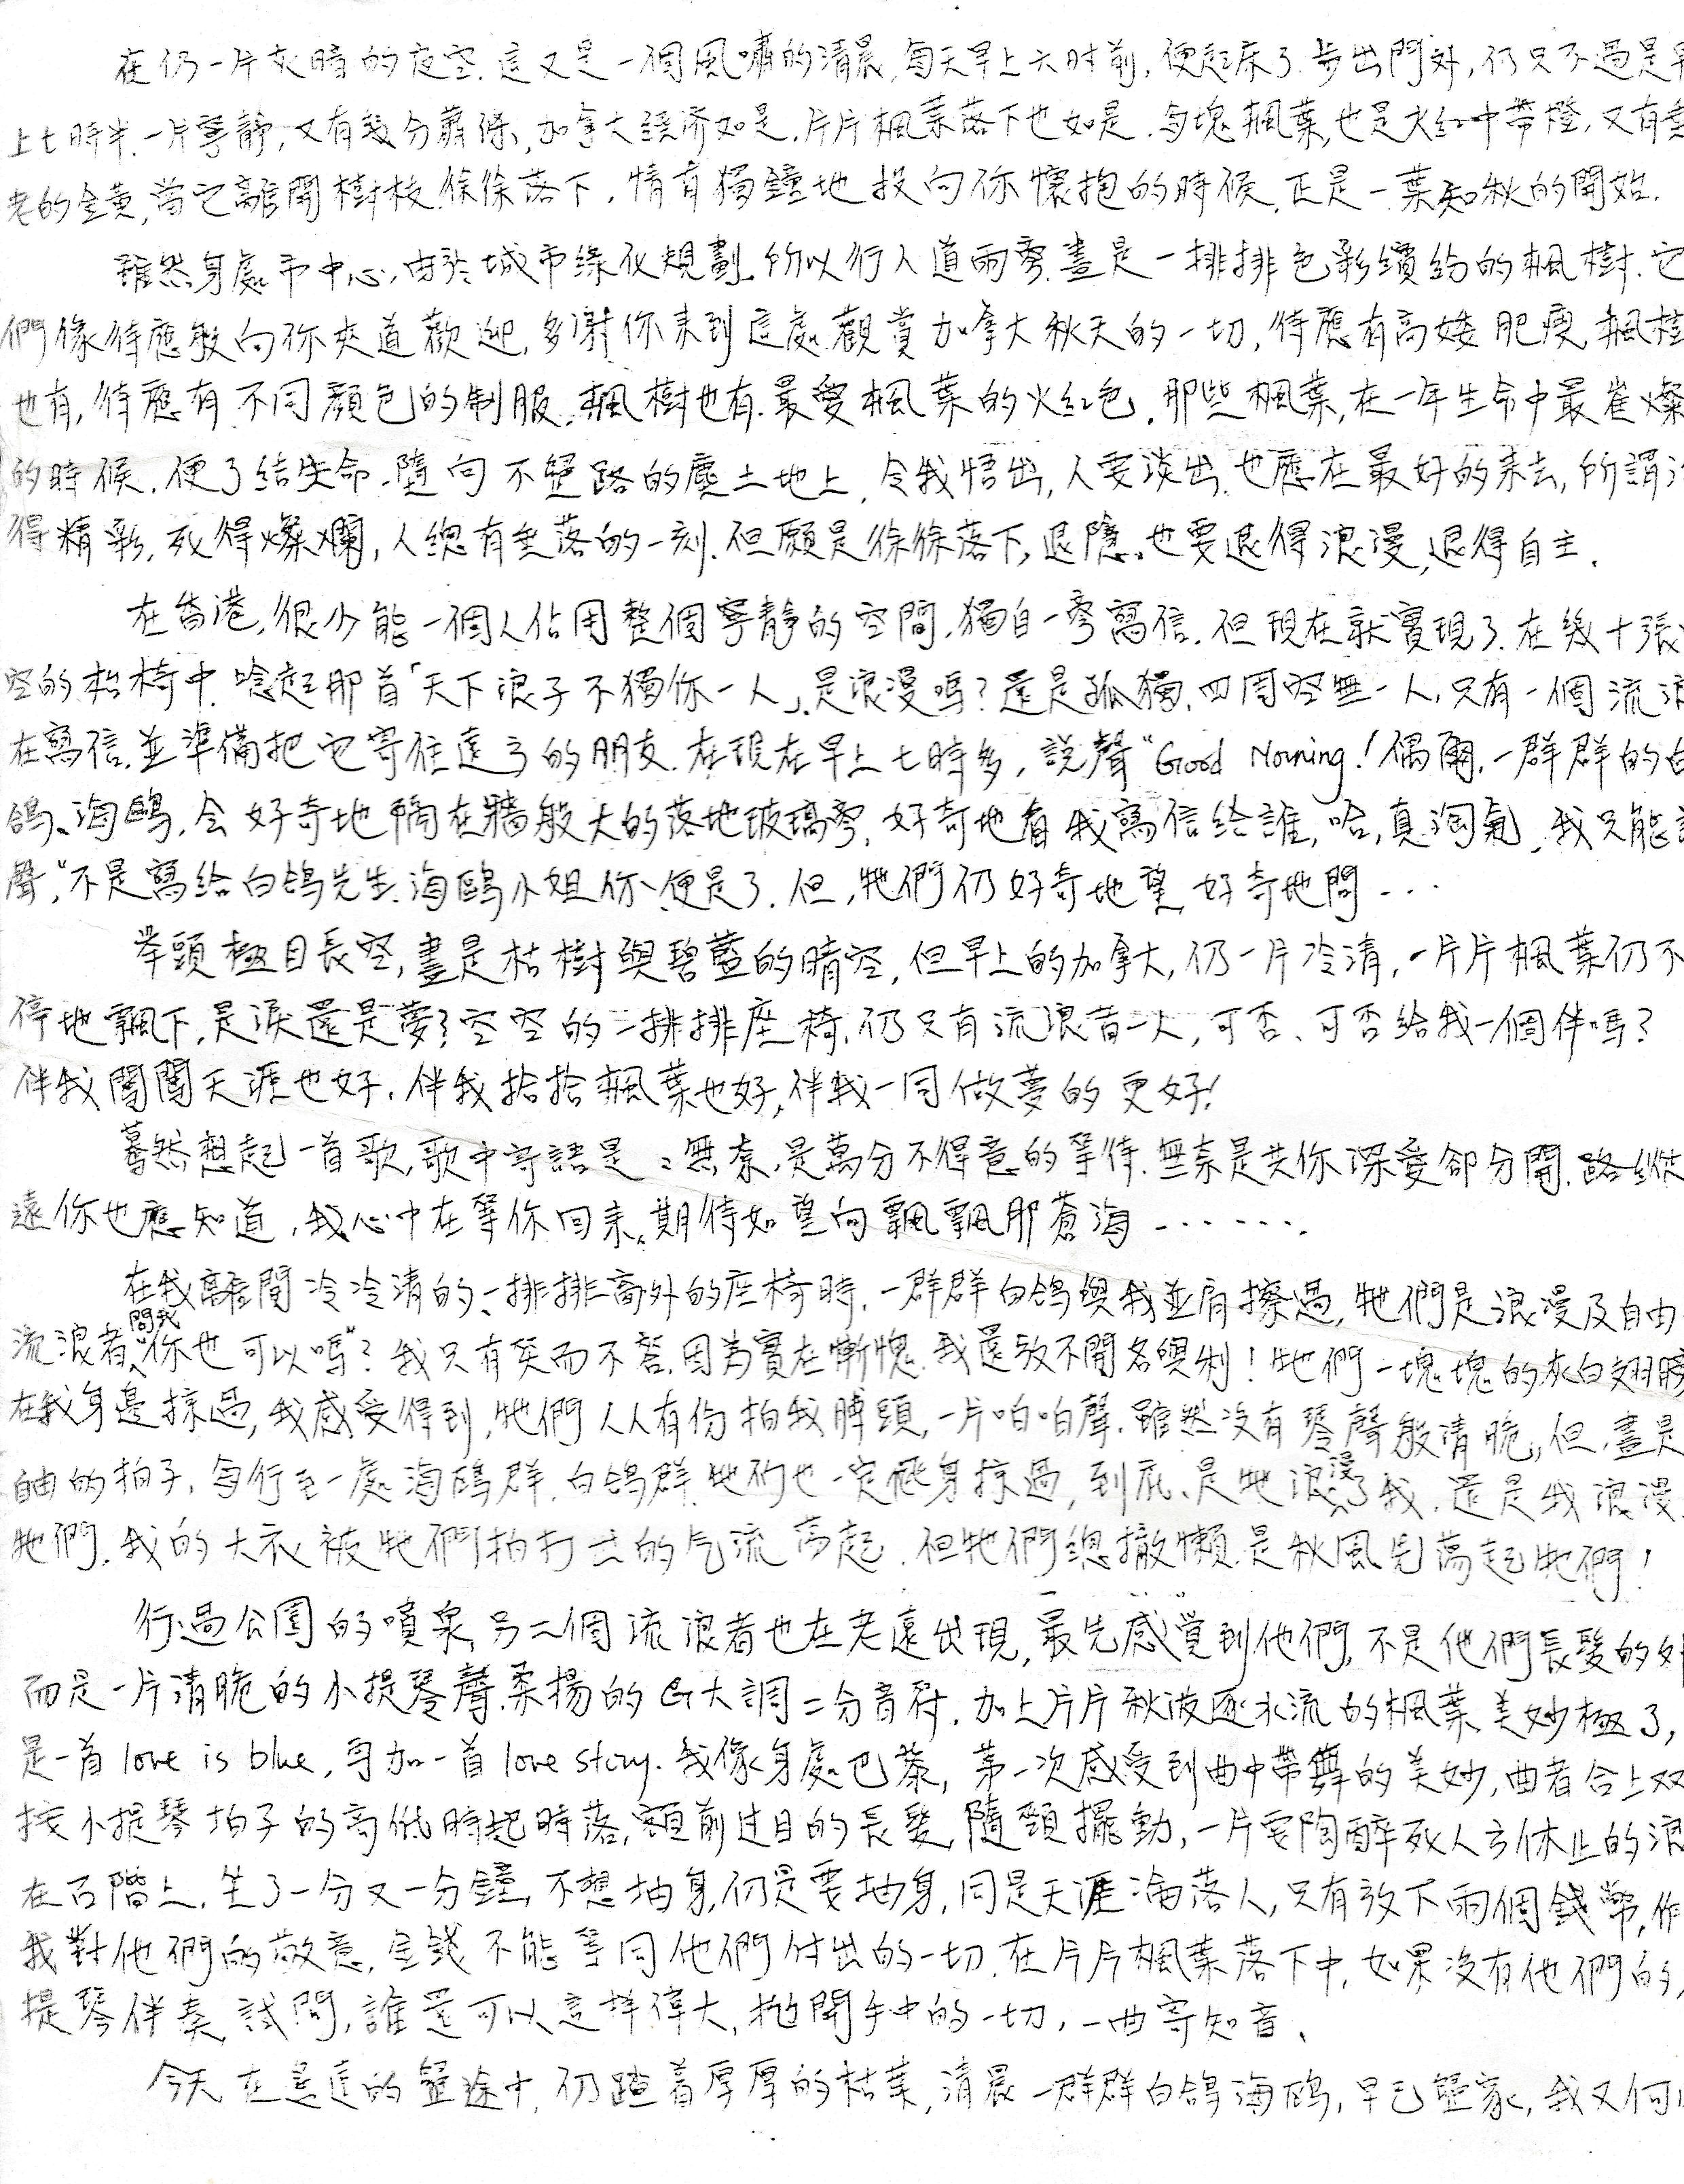 在仍一片灰暗的夜空.這又是一個風嘯的清晨,每天早上六时前,便起床了.步出門外,仍只不過是早
上七時半.一片寧靜,又有幾分蕭條,加拿大經济如是.片片楓葉落下也如是.每塊楓葉,也是火红中帶橙,又有
老的金黄,當它離開樹枝.徐徐落下.情有獨鐘地投向你懷抱的時候.正是一葉知秋的開始.
雖然身處市中心,由於城市綠化規劃.所以行人道兩旁.盡是一排排色彩繽紛的楓樹.它
們像侍應般向你夾道歡迎,多謝你来到這處觀賞加拿大秋天的一切,侍應有高矮肥瘦,楓樹
也有,侍應有不同顏色的制服.楓樹也有.最愛楓葉的火红色.那些楓葉,在一年生命中最崔燦
的時候.便了結生命.隨向不歸路的塵土地上,令我悟出,人要淡出.也應在最好的来去,所謂活
得精彩.死得燦爛,人總有垂落的一刻.但願是徐徐落下,退隱.也要退得浪漫,退得自主.
在香港,很少能一個人佔用整個寧靜的空間.獨自一旁寫信.但現在就實現了.在幾十張
空的枱椅中.唸起那首「天下浪子不獨你一人」.是浪漫嗎?還是孤獨.四周空無一人,只有一個流浪
在寫信.並準備把它寄往遠方的朋友.在現在早上七時多,説聲“Good Morning!偶爾.一群群的白
鴿、海鷗,会好奇地隔在牆般大的落地玻璃旁,好奇地看我寫信给誰,哈,真淘氣,我只能説
聲,“不是寫給白鴿先生.海鷗小姐你、便是了.但,牠們仍好奇地望,好奇地問...
举頭極目長空,盡是枯樹與碧藍的晴空,但早上的加拿大,仍一片冷清,一片片楓葉仍不
停地飄下.是淚還是夢?空空的一排排座椅.仍只有流浪者一人,可否、可否給我一個伴嗎?
伴我闖闖天涯也好.伴我拾拾楓葉也好,伴我一同做夢的更好!
驀然想起一首歌,歌中寄語是:無奈.是萬分不得意的等待.無奈是共你深愛卻分開.路縱
遠你也應知道.我心中在等你回来,期待如望向飄飄那蒼海.......
在我離開冷冷清的、一排排窗外的座椅時.一群群白鴿與我並肩擦過,牠們是浪漫及自由
流浪者、問我“你也可以嗎”?我只有笑而不答.因為實在慚愧.我還放不開名與利!牠們一塊塊的灰白翅膀
在我身邊掠過,我感受得到,牠們人人有份拍我膊頭,一片啪啪聲.雖然没有琴聲般清脆,但,盡是
自由的拍子.每行至一處海鷗群.白鴿群.牠們也一定飛身掠過,到底.是牠浪漫了我.還是我浪漫
牠們.我的大衣被牠們拍打出的气流蕩起.但牠們總撒懶.是秋風先蕩起牠們!
行過公園的噴泉,另二個流浪者也在老遠出現,最先感覺到他們,不是他們長髮的外
而是一片清脆的小提琴聲.柔揚的G大調二分音符.加上片片秋波逐水流的楓葉.美妙極了,
是一首love is blue,另加一首love story.我像身處巴黎,第一次感受到曲中帶舞的美妙,曲者合上双
按小提琴拍子的高低時起時落,額前过目的長髮,隨頭擺動,一片要陶醉死人方休止的浪
在石階上.坐了一分又一分鐘,不想抽身,仍是要抽身,同是天涯淪落人,只有放下兩個錢幣,作
我對他們的敬意.金錢不能等同他們付出的一切.在片片楓葉落下中,如果没有他們的
提琴伴奏,試問,誰還可以這样偉大,抛開手中的一切,一曲寄知音、
今天在遙遠的歸途中,仍踏着厚厚的枯葉,清晨一群群白鴿海鷗,早已歸家,我又何